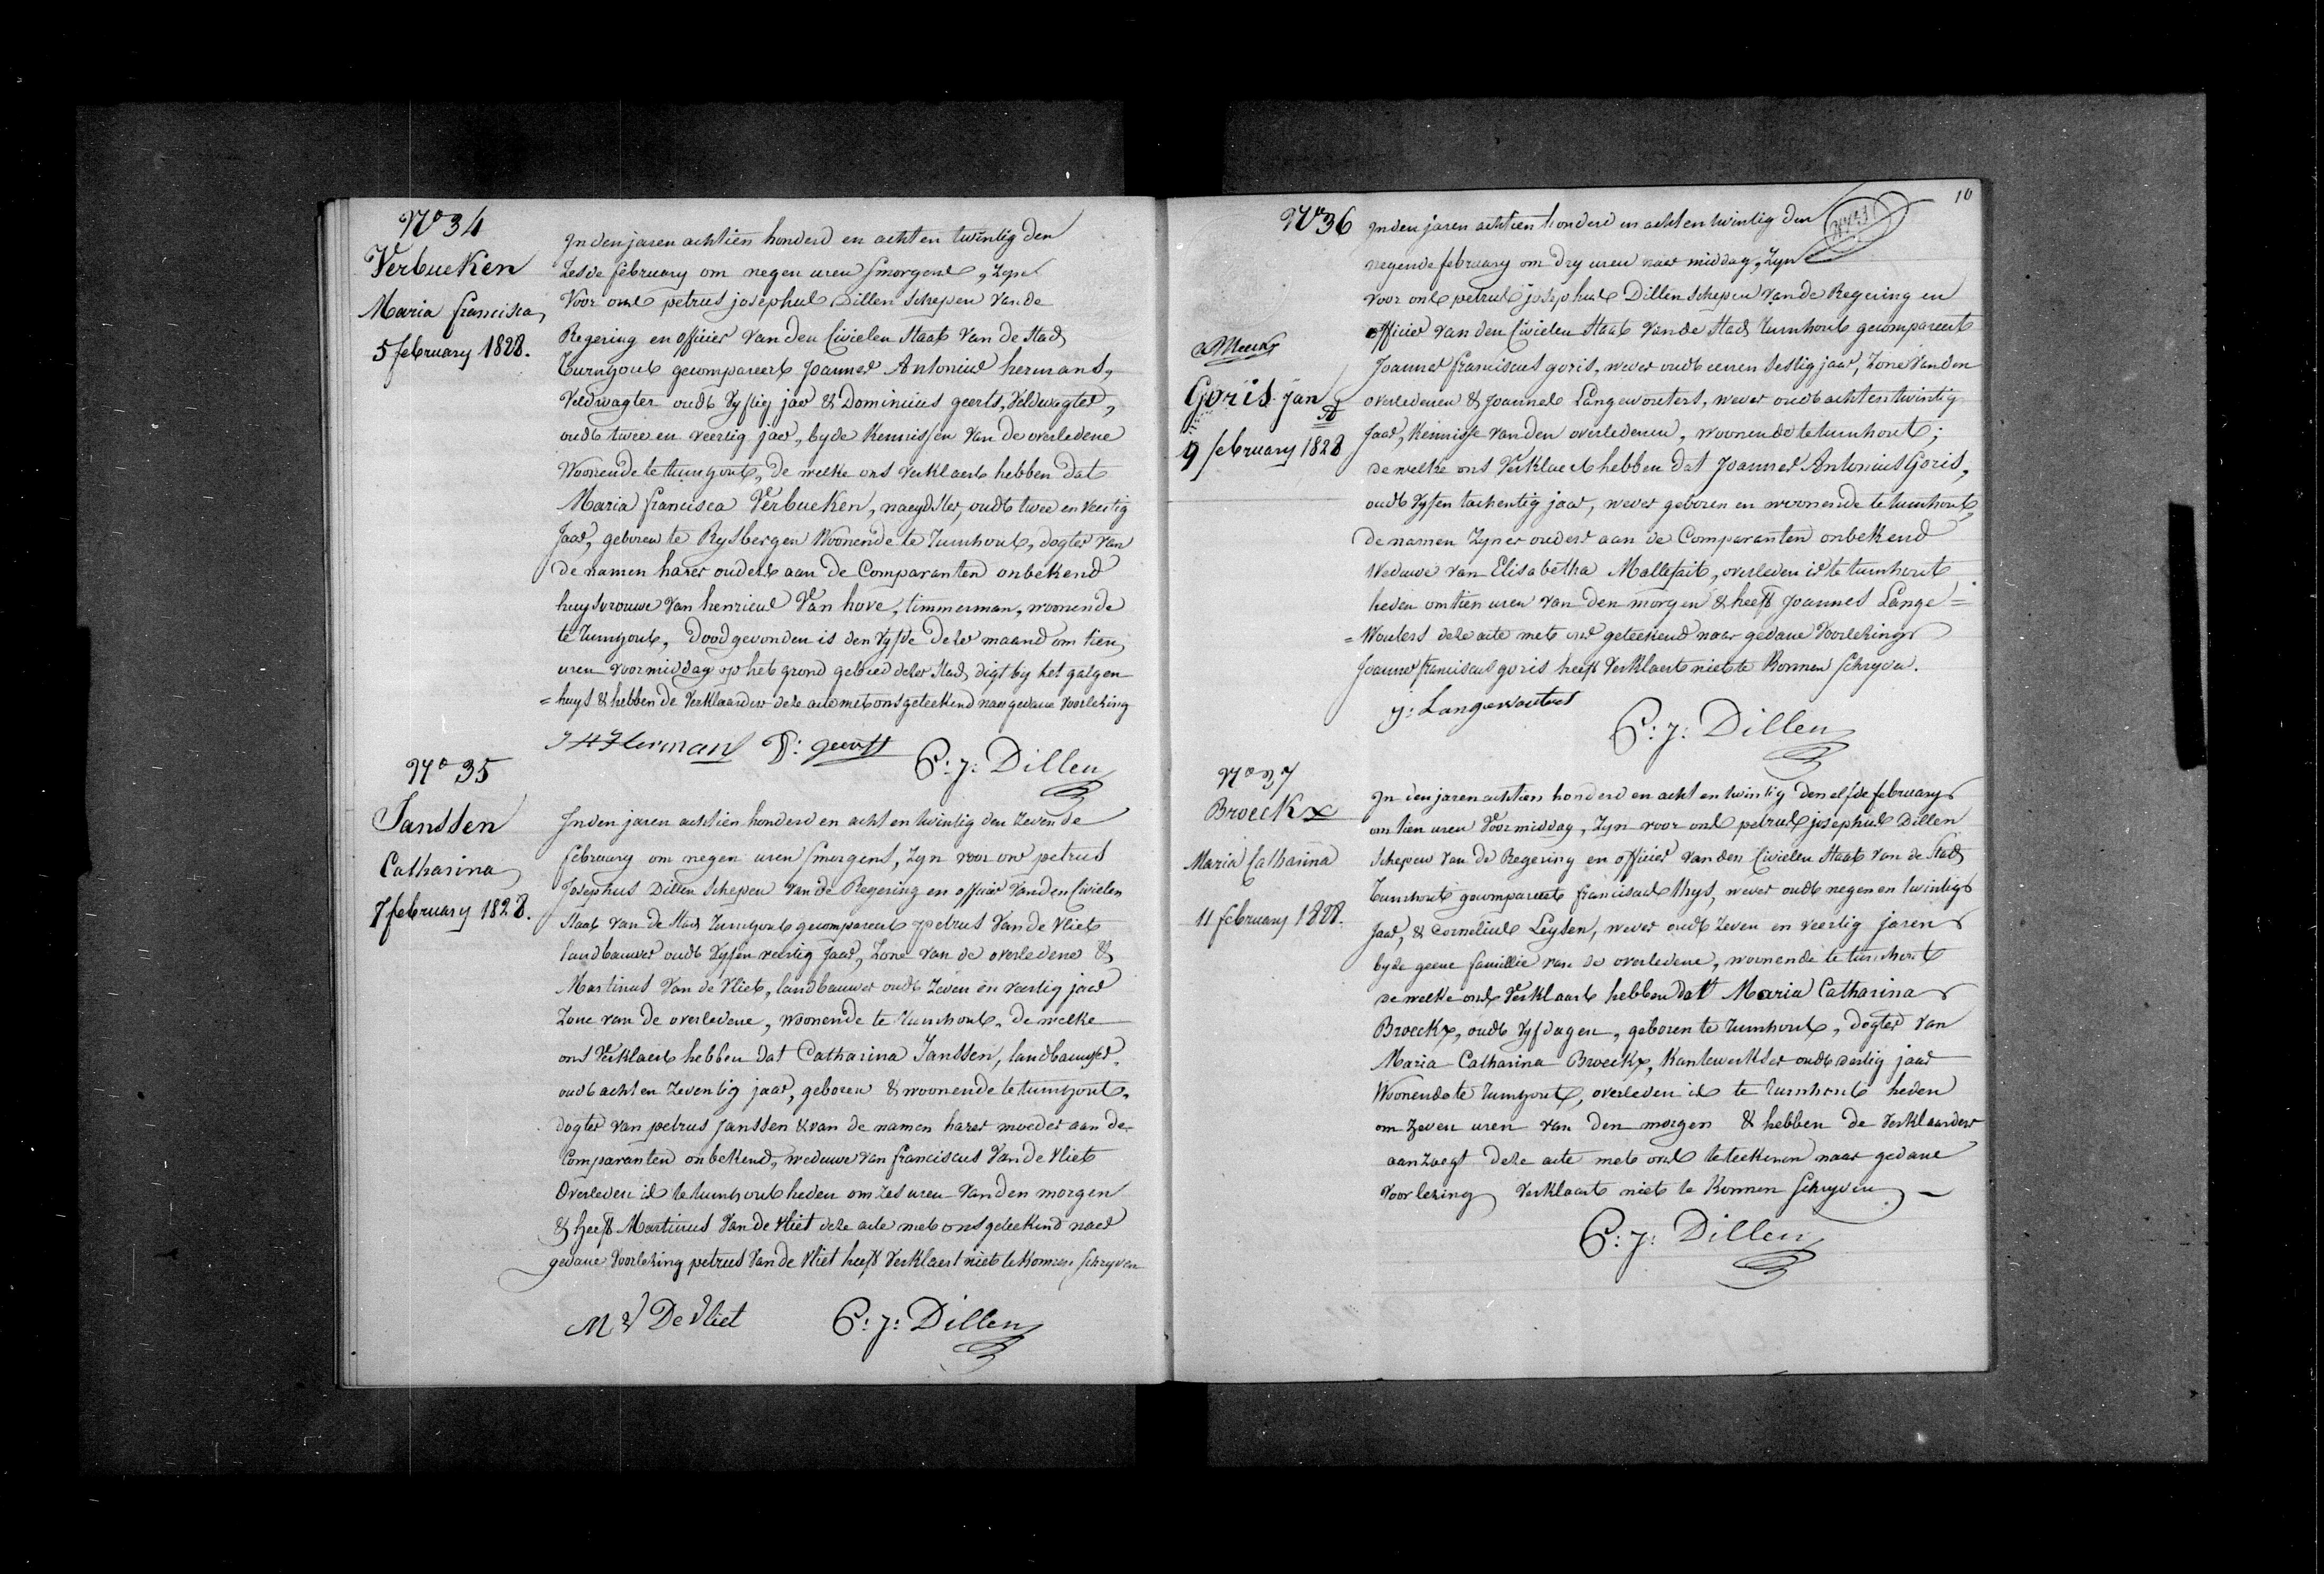 N° 34
Verbueken
Maria francisca
5 february 1828.
In den jaren achtien honderd en acht en twintig den
zesde february om negen uren smorgens, zyn
Voor ons petrus josephus Dillen schepen van de
Regering en officier van den Civielen Staat van de Stad
Turnhout gecompareert Joannes Antonius hermans,
Veldwagter oudt vyftig jaer & Dominicus geerts, Veldwagter,
oudt twee en veertig jaer, byde Kennissen van de overledene
Woonende te turnhout, de welke ons verklaert hebben dat
Maria francisca Verbueken, naeyster, oudt twee en veertig
Jaar, geboren te Rysbergen Woonende te Turnhout, dogter van
de namen harer ouders aan de Comparanten onbekend
huysvrouwe van henricus Van hove, timmerman, woonende
te turnhout, dood gevonden is den vyfde dezer maand om tien
uren voormiddag op het grond gebied dezer Stad, digt by het galgen
= huys & hebben de Verklaarders deze acte met ons geteekend naer gedane voorlezing
J A Hermans D: geerts P: J: Dillen
N° 35
Janssen
Catharina
7 february 1828.
In den jaren achtien honderd en acht en twintig den zevende
february om negen uren smorgens, zyn voor ons petrus
Josephus Dillen Schepen van de Regering en officier van den Civielen
Staat van de Stad Turnhout gecompareert petrus Van de Vliet
landbauwer oudt vyf en veertig Jaar, Zone van de overledene &
Martinus Van de Vliet, landbauwer oudt Zeven en veertig jaer
Zone van de overledene, woonende te turnhout, de welke
ons Verklaert hebben dat Catharina Janssen, landbauwster
oudt acht en zeventig jaar, geboren & woonende te turnhout,
dogter van petrus janssen & van de namen harer moeder aan de
Comparanten onbekend, weduwe van franciscus Van de Vliet
Overleden is te turnhout heden om zes uren van den morgen
& heeft Martinus Van de Vliet deze acte met ons geteekend naer
gedane Voorlezing petrus Van de Vliet heeft Verklaert niet te Konnen schryven
M V De Vliet P: J: Dillen
10
N° 36
Goris Jan
A
9 february 1828
In den jaren achtien honderd en acht en twintig den
negende february om dry uren naer middag, Zyn
voor ons petrus josephus Dillen schepen van de Regering en
officier van den Civielen Staat van de Stad Turnhout gecompareert
Joannes franciscus goris, wever oudt eenen sestig jaar, Zone van den
overledenen & Joannes Langewouters, wever oudt acht en twintig
Jaar, Kennisse van den overledenen, woonende te turnhout;
de welke ons Verklaert hebben dat Joannes Antonius Goris,
oudt vyf en tachentig jaar, wever geboren en woonende te turnhout,
de namen Zyner ouders aan de Comparanten onbekend
Weduwe van Elisabetha Mallefait, overleden is te turnhout
heden om tien uren van den morgen & heeft Joannes Lange =
= Wouters deze acte met ons geteekend naer gedane Voorlezing
Joannes franciscus goris heeft Verklaert niet te Konnen schryven.
J: Langewouters
P: J: Dillen
N° 37
Broeckx
Maria Catharina
11 february 1828.
In den jaren achtien honderd en acht en twintig den elfde february
om tien uren Voormiddag, Zyn voor ons petrus josephus Dillen
Schepen van de Regering en officier van den Civielen Staat van de Stad
Turnhout gecompareert franciscus thys, wever oudt negen en twintig
Jaar, & Cornelius Leysen, wever oudt zeven en veertig jaren
byde geene famillie van de overledene, woonende te turnhout
de welke ons Verklaart hebben dat Maria Catharina
Broeckx, oudt vyf dagen, geboren te turnhout, dogter van
Maria Catharina Broeckx, Kantewerkster oudt dertig jaar
Woonende te turnhout, overleden is te turnhout heden
om zeven uren van den morgen & hebben de Verklaarders
aanzoegt deze acte met ons te teekenen naer gedane
Voorlezing Verklaart niet te Konnen schryven. —
P: J: Dillen